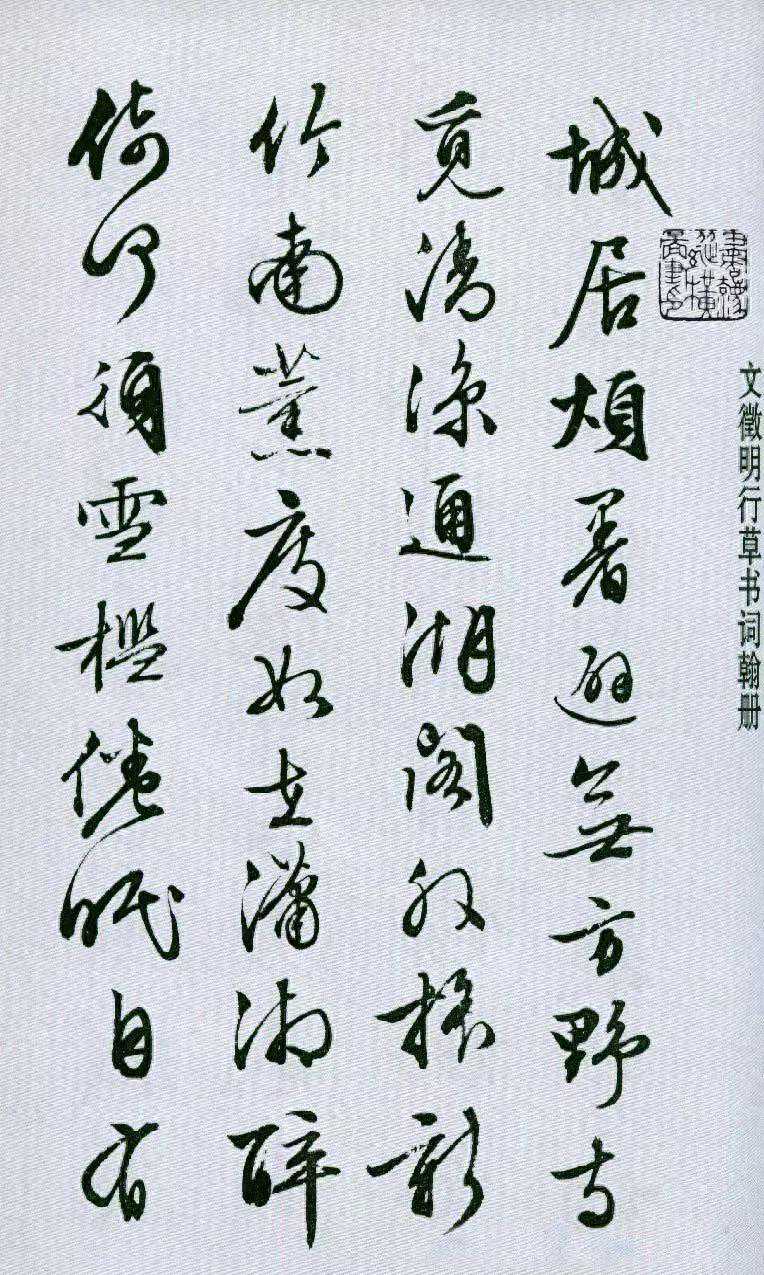 文徵明行草书词翰册
城居煩暑避無方野寺
覓清涼通湖閣外搖新
竹南薰度如在瀟湘醉
倚何須雪檻倦眠自有